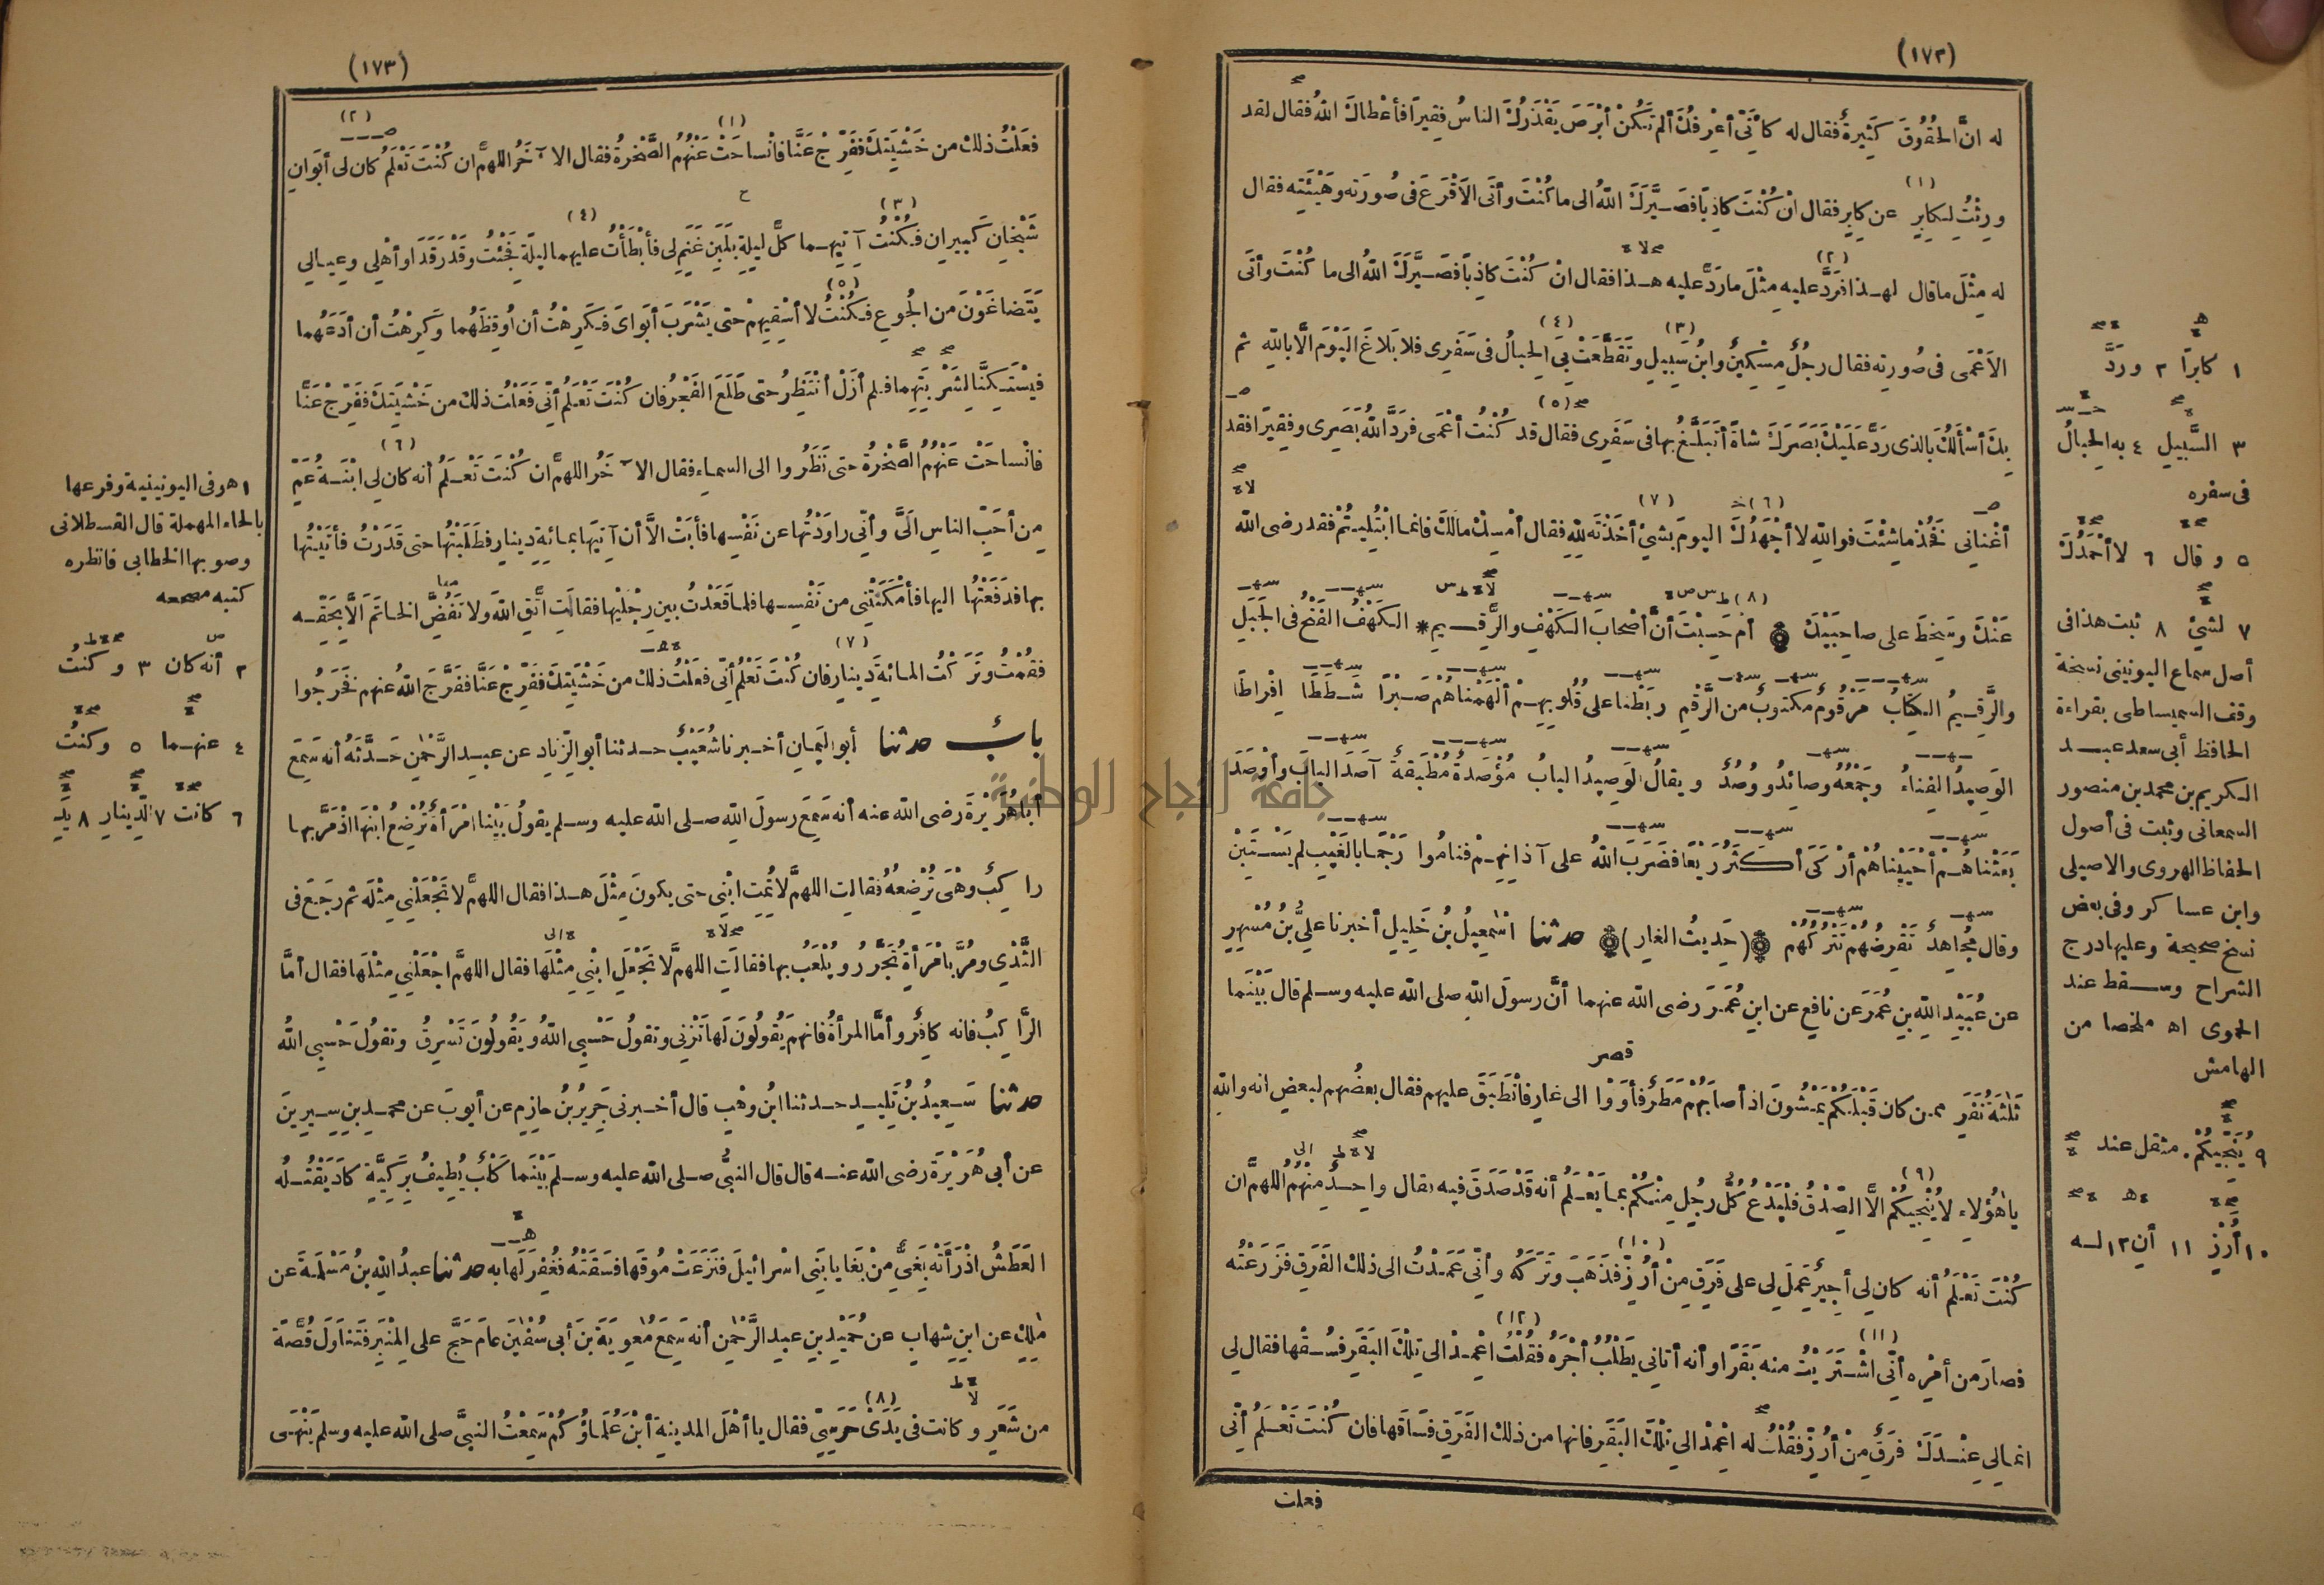 (١٧٢)
له انَّ الحُقُوقَ كَثِيرةٌ فقال له كأنِّي أعْرِفُكَ ألم تَكُنْ أبْرَصَ يَقْذَرُكَ الناسُ فقِيرًا فأعْطاكَ اللهُ فقال لقد
ورِثْتُ لِكابِرٍ عن كابِرٍ فقال انْ كُنْتَ كاذِبًا فصَيَّرَكَ اللهُ الى ما كُنْتَ وأتَى الاَقْرَعَ فى صُورَتِه وهَيْئَتِه فقال
له مِثْلَ ما قال لهذا فرَدَّ عليه مِثْلَ ما رَدَّ عليه هذا فقال انْ كُنْتَ كاذِبًا فصَيَّرَكَ اللهُ الى ما كُنْتَ وأتَى
الاَعْمَى فى صُورتِه فقال رجُلٌ مِسْكِينٌ وابنُ سَبِيلٍ وتَقَطَّعَتْ بِيَ الحِبالُ فى سَفَرِى فلا بَلاغَ اليَوْمَ الَّا بالله ثم
بِكَ أسْأَلُكَ بالذى رَدَّ عَلَيْكَ بَصَرَكَ شاةً أتَبَلَّغُ بها فى سَفَرِى فقال قد كُنْتُ أعْمَى فرَدَّ اللهُ بَصَرِى وفقِيرًا فقد
أغْنانِي فَخُذْ ما شِئْتَ فوالله لا أجْهَدُكَ اليومَ بشَيْءٍ أخَذْتَه لله فقال أمْسِكْ مالَكَ فانما ابْتُلِيتُمْ فقد رضى الله
عَنْكَ وسَخِطَ على صاحِبَيْكَ أم حَسِبْتَ أنَّ أصْحابَ الكَهْفِ والرَّقِيمِ * الكَهْفُ الفَتْحُ فى الجَبَلِ
والرَّقِيمُ الكِتابُ مَرْقُومٌ مكتوبٌ من الرَّقْمِ ربَطْنا على قُلُوبِهِمْ ألْهَمْناهُمْ صَبْرًا شَطَطًا افْراطًا
الوَصِيدُ الفِناءُ وجَمْعُهُ وصائِدُ ووُصُدٌ ويقالُ الوَصِيدُ البابُ مُؤْصَدَةٌ مُطْبَقةٌ آصَدَ البابَ وأوْصَدَ
بَعَثْناهُمْ أحْيَيْناهُمْ أزْكَى أكْثَرُ رَيْعًا فضَرَبَ اللهُ على آذانِهِمْ فنامُوا رَجْمًا بالغَيْبِ لم يَسْتَبِنْ
وقال مُجاهِدٌ تَقْرِضُهُمْ تَتْرُكُهُمْ (حَدِيثُ الغارِ) حدثنا اسْمٰعِيلُ بنُ خَلِيلٍ أخبرنا علىُّ بنُ مُسْهِرٍ
عن عُبَيْدِ اللهِ بنِ عُمَرَ عن نافِعٍ عن ابنِ عُمَرَ رضى الله عنهما أنَّ رسولَ اللهِ صلى الله عليه وسلم قال بَيْنَما
ثَلٰثَةُ نَفَرٍ ممن كان قَبْلَكُمْ يَمْشُونَ اذْ أصابَهُمْ مَطَرٌ فأوَوْا الى غارٍ فانْطَبَقَ عليهم فقال بعضُهم لبعضٍ انه والله
يا هٰؤُلاءِ لا يُنْجِيكُمْ الَّا الصِّدْقُ فلْيَدْعُ كُلُّ رجُلٍ مِنْكُمْ بما يَعْلَمُ أنه قَدْ صَدَقَ فيه فقال واحِدٌ مِنْهُمُ اللهمَّ ان
كُنْتَ تَعْلَمُ أنه كان لِي أجِيرٌ عَمِلَ لِى على فَرَقٍ مِنْ أُرُزٍّ فذَهَبَ وتَرَكَهُ وأنِّي عَمَدْتُ الى ذلك الفَرَقِ فزَرَعْتُه
فصارَ من أمْرِه أنِّي اشْتَرَيْتُ منه بَقَرًا وأنه أتانى يَطْلُبُ أجْرَهُ فقُلْتُ اعْمِدْ الى تِلْكَ البَقَرِ فسُقْها فقال لى
انما لِي عِنْدَكَ فَرَقٌ مِنْ أُرُزٍّ فقُلْتُ له اعْمِدْ الى تلكَ البَقَرِ فانها من ذلك الفَرَقِ فسَاقَها فان كُنْتَ تَعْلَمُ أنِّي
فعلت
١ كابرًا ٢ ورَدَّ
٣ السَّبِيلِ ٤ به الحِبالُ
فى سفره
٥ وقال ٦ لا أحْمَدُكَ
٧ لشيْءٍ ٨ ثبت هذا فى
أصل سماع اليونينى نسخة
وقف السميساطى بقراءة
الحافظ أبى سعد عبد
الكريم بن محمد بن منصور
السمعانى وثبت فى أصول
الحفاظ الهروى والاصيلى
وابن عساكر وفى بعض
نسخ صحيحة وعليها درج
الشراح وسقط عند
الحموى اه ملخصا من
الهامش
٩ يُنَجِّيكُمْ. مثقل عند
١٠ أَرُزٍّ ١١ أن ١٢ له
(١٧٣)
فعَلْتُ ذلك من خَشْيَتِكَ ففَرِّجْ عَنَّا فانْساحَتْ عَنْهُمُ الصَّخْرةُ فقال الآخَرُ اللهمَّ ان كُنْتَ تَعْلَمُ كان لى أبَوانِ
شَيْخانِ كَبِيرانِ فكُنْتُ آتِيهِما كلَّ ليلةٍ بلَبَنِ غَنَمٍ لِى فأبْطَأْتُ عليهما ليلَةً فَجِئْتُ وقَدْ رَقَدَا وأهْلِى وعيالى
يَتَضاغَوْنَ من الجُوعِ فكُنْتُ لا أسْقِيهِمْ حتى يَشْرَبَ أبَوَاىَ فكَرِهْتُ أن أُوقِظَهُما وكَرِهْتُ أن أدَعَهُما
فيَسْتَكِنَّا لِشَرْبَتِهِما فلم أزَلْ أنْتَظِرُ حتى طَلَعَ الفَجْرُ فان كُنْتَ تَعْلَمُ أنِّي فَعَلْتُ ذلك من خَشْيَتِكَ ففَرِّجْ عَنَّا
فانْساحَتْ عَنْهُمُ الصَّخْرةُ حتى نَظَرُوا الى السماء فقال الآخَرُ اللهمَّ ان كُنْتَ تَعْلَمُ أنه كان لِى ابْنَةُ عَمٍّ
مِن أحَبِّ الناسِ الَيَّ وأنِّي راوَدْتُها عن نَفْسِها فأبَتْ الَّا أن آتِيَها بمائةِ دِينارٍ فطَلَبْتُها حتى قَدَرْتُ فأتَيْتُها
بها فدَفَعْتُها اليها فأمْكَنَتْنِي من نَفْسِها فلما قَعَدْتُ بين رِجْلَيْها فقالَتِ اتَّقِ اللهَ ولا تَفُضَّ الخاتَمَ الَّا بِحَقِّه
فقُمْتُ وتَرَكْتُ المائةَ دِينارٍ فان كُنْتَ تَعْلَمُ أنِّي فعَلْتُ ذلك من خَشْيَتِكَ ففَرِّجْ عَنَّا ففَرَّجَ اللهُ عنهم فخَرَجُوا
بابٌ حدثنا أبو اليَمانِ أخبرنا شُعَيْبٌ حدثنا أبو الزِّنادِ عن عبدِ الرَّحْمٰنِ حَدَّثَهُ أنه سَمِعَ
أباهُرَيْرةَ رضى الله عنه أنه سَمِعَ رسولَ اللهِ صلى الله عليه وسلم يقولُ بَيْنا امْرَأةٌ تُرْضِعُ ابْنَها اذْ مَرَّ بها
راكِبٌ وهْىَ تُرْضِعُهُ فقالت اللهمَّ لا تُمِتِ ابْنِي حتى يكونَ مِثْلَ هذا فقال اللهمَّ لا تَجْعَلْنِي مِثْلَه ثم رَجَعَ فى
الثَّدْىِ ومُرَّ بامْرَأةٍ تُجَرَّرُ ويُلْعَبُ بها فقالَتِ اللهمَّ لا تَجْعَلِ ابْنِي مِثْلَها فقال اللهمَّ اجْعَلْنِي مِثْلَها فقال أمَّا
الرَّاكِبُ فانه كافِرٌ وأمَّا المرأةُ فانهم يَقُولُونَ لَها تَزْنِى وتقولُ حَسْبِى اللهُ ويَقُولُونَ تَسْرِقُ وتقولُ حَسْبِى اللهُ
حدثنا سَعِيدُ بنُ تَلِيدٍ حدثنا ابنُ وهْبٍ قال أخبرنى جَرِيرُ بنُ حازِمٍ عن أيوبَ عن محمدِ بنِ سِيرِينَ
عن أبى هُرَيْرَةَ رضى الله عنه قال قال النبىُّ صلى الله عليه وسلم بَيْنَما كَلْبٌ يُطِيفُ بِرَكِيَّةٍ كادَ يَقْتُلُهُ
العَطَشُ اذْ رَأَتْهُ بَغِىٌّ مِنْ بَغايا بَنِى اسْرائيلَ فنَزَعَتْ مُوقَها فسَقَتْهُ فغُفِرَ لَها بِه حدثنا عبدُ اللهِ بنُ مَسْلَمةَ عن
مٰلِكٍ عن ابنِ شِهابٍ عن حُمَيْدِ بنِ عبدِ الرَّحْمٰنِ أنه سَمِعَ مُعٰوِيَةَ بنَ أبى سُفْيٰنَ عامَ حَجَّ على المِنْبَرِ فتَناوَلَ قُصَّةً
من شَعَرٍ وكانت فى يَدَىْ حَرَسِىٍّ فقال يا أهْلَ المدينةِ أيْنَ عُلَماؤُكُمْ سَمِعْتُ النبىَّ صلى الله عليه وسلم يَنْهَى
١ هو فى اليونينية وفرعها
بالحاء المهملة قال القسطلانى
وصوبها الخطابى فانظره
كتبه مصححه
٢ أنه كان ٣ وكنتُ
٤ عنهما ٥ وكنتُ
٦ كانت ٧ الدِّينارِ ٨ يَدِ
جامعة النجاح الوطنية